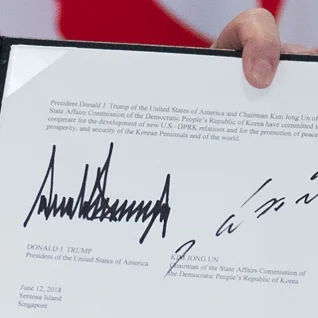 President Donald J. Trump of the United States of America and Chairman Kim Jong Un of
State Affairs Commission of the Democratic People's Republic of Korea have committed t
cooperate for the development of new U.S.–DPRK relations and for the promotion of peace
prosperity, and security of the Korean Peninsula and of the world.
DONALD J. TRUMP
President of the United States of America
KIM JONG UN
Chairman of the State Affairs Commission of
the Democratic People's Republic of Korea
June 12, 2018
Sentosa Island
Singapore